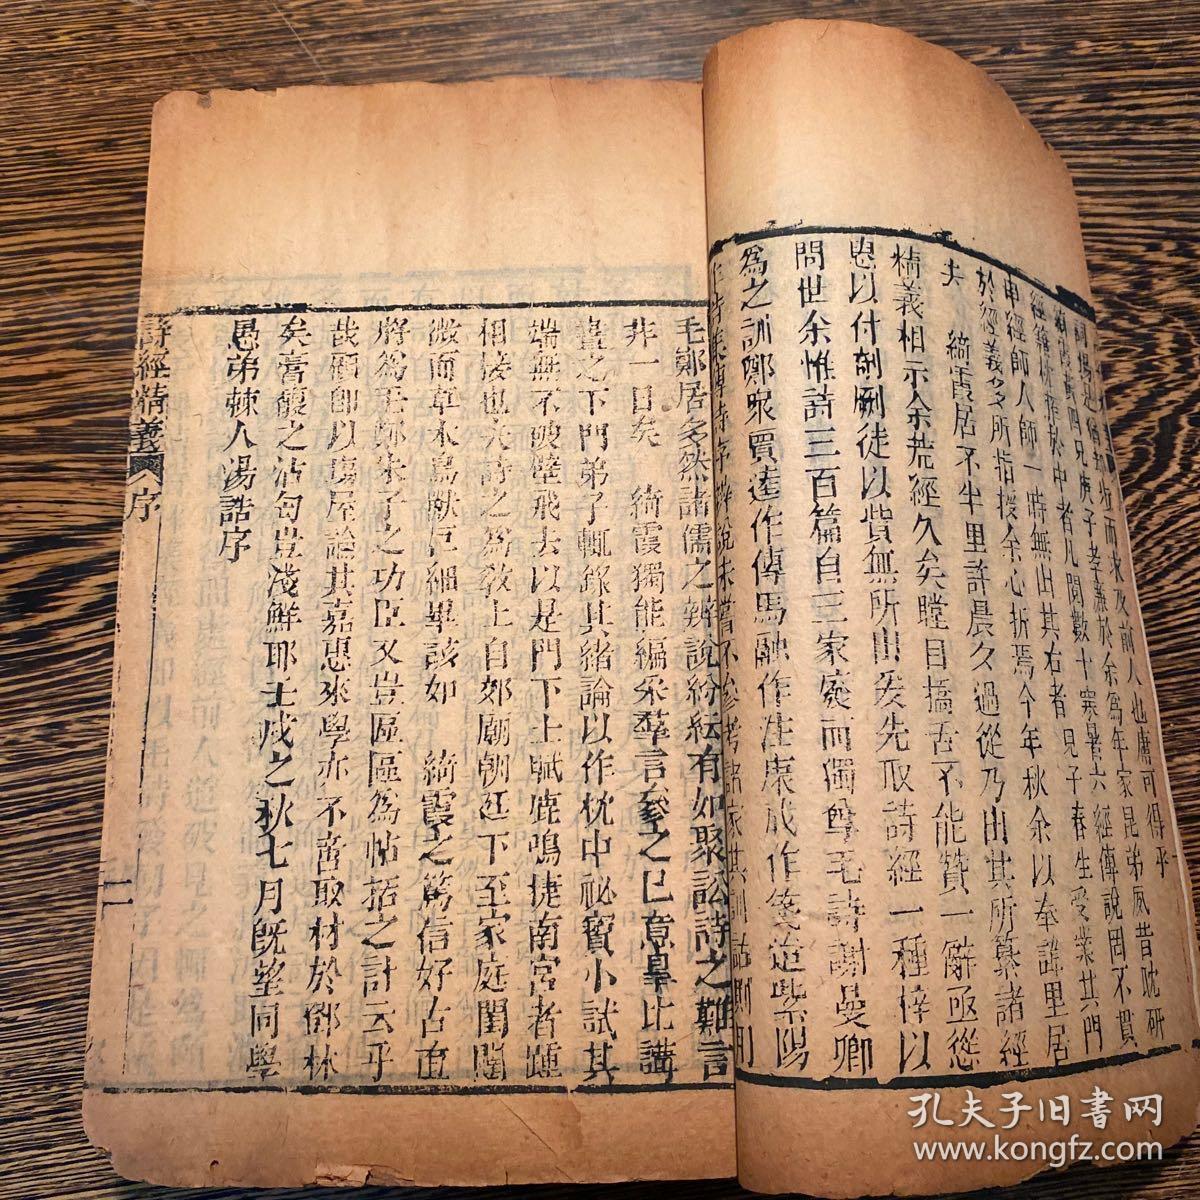 詞場追
而求及前人也庸可得乎
四兄庚子孝廉於余為年家昆弟夙昔耽研
經籍
於中者凡閱數十寒暑六經傳說罔不貫
申經師人師一時無出其右者兒子春生受業其門
於經義多所指授余心折焉今年秋余以奉諱里居
夫 綺霞居不半里許晨夕過從乃出其所纂諸經
精義相示余荒經久矣瞠目撟舌不能贊一辭亟慫
恿以付剞劂徒以貲無所出爰先取詩經一種梓以
問世余惟詩三百篇自三家廢而獨尊毛詩謝曼卿
為之訓鄭眾賈逵作傳馬融作注康成作箋迨紫陽
作詩集傳詩序辨說未嘗不參考諸家其訓詁則用
毛鄭居多然諸儒之辨說紛紜有如聚訟詩之難言
非一日矣 綺霞獨能編釆羣言參之已意臯比講
畫之下門弟子輒錄其緒論以作枕中祕寶小試其
端無不破壁飛去以是門下士賦鹿鳴捷南宮者踵
相接也夫詩之為教上自郊廟朝廷下至家庭閨闥
微而草木鳥獸巨細畢該如 綺霞之篤信好古直
將為毛鄭朱子之功臣又豈區區為帖括之計云乎
哉顧即以塲屋論其嘉惠來學亦不啻取材於鄧林
矣膏馥之沾匄豈淺鮮耶壬戌之秋七月旣望同學
愚弟棘人湯誥序
詩經精義 序 二
孔夫子旧书网
www.kongfz.com